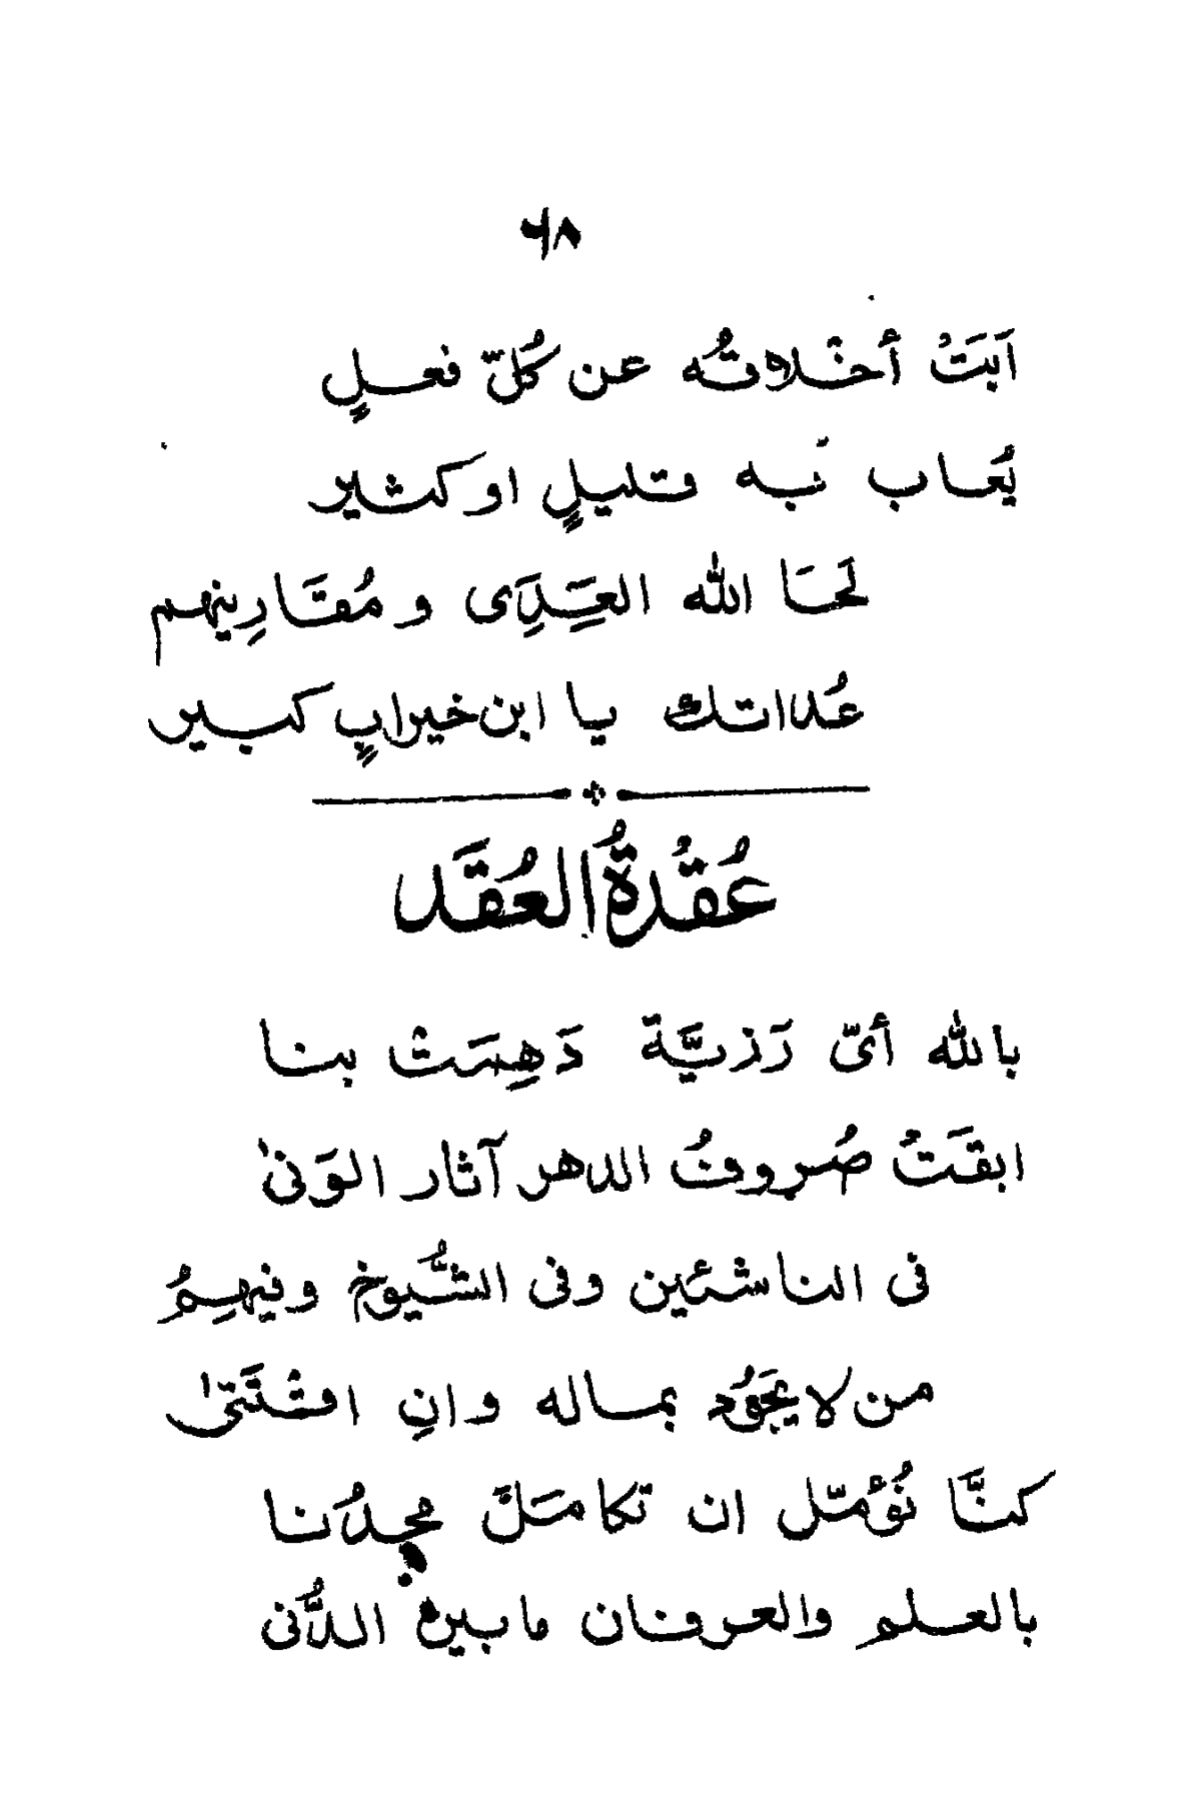 ٦٨
اَبَتْ أخْلاقُه عن كُلّ فعلٍ
يُعاب به قليلٍ او كثير
لَحَا الله العِدَى و مُقَارِينهم
عُداتك يا ابن خيرابٍ كبير
عُقْدةُ العُقَد
بالله أىّ رَزيَّة دَهِمَتْ بنا
ابقَتْ صُروفُ الدهر آثار الوَنىٰ
فى الناشئين وفى الشُّيوخ وفيهِمُ
من لا يَجُودُ بماله وانِ اقْتَنىٰ
كنَّا نُؤمّل ان تكامَلَ مجدُنا
بالعلم والعرفان مابين الدُّنى